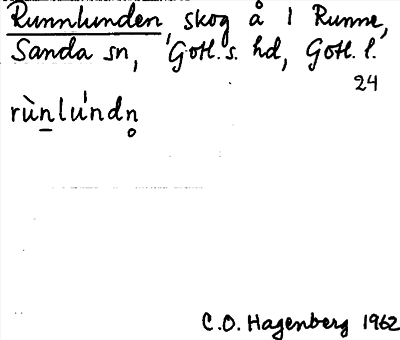 Runnlunden, skog å 1 Runne,
Sanda sn, Gotl. s. hd, Gotl. l.
24
rùn̲lúndn̥
C.O. Hagenberg 1962